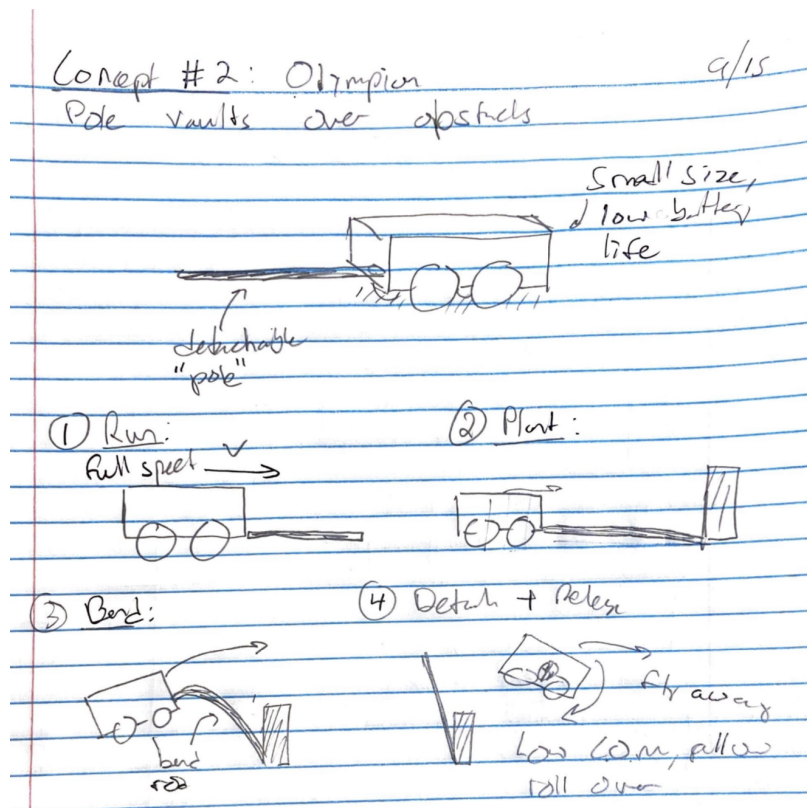 Concept #2: Olympian
9/15
Pole vaults over obstacles
Small size,
low battery
life
detachable
"pole"
① Run:
Full speed V
② Plant:
③ Bend:
bend
rod
④ Detach + Release
fly away
Low C.O.M, allow
roll over